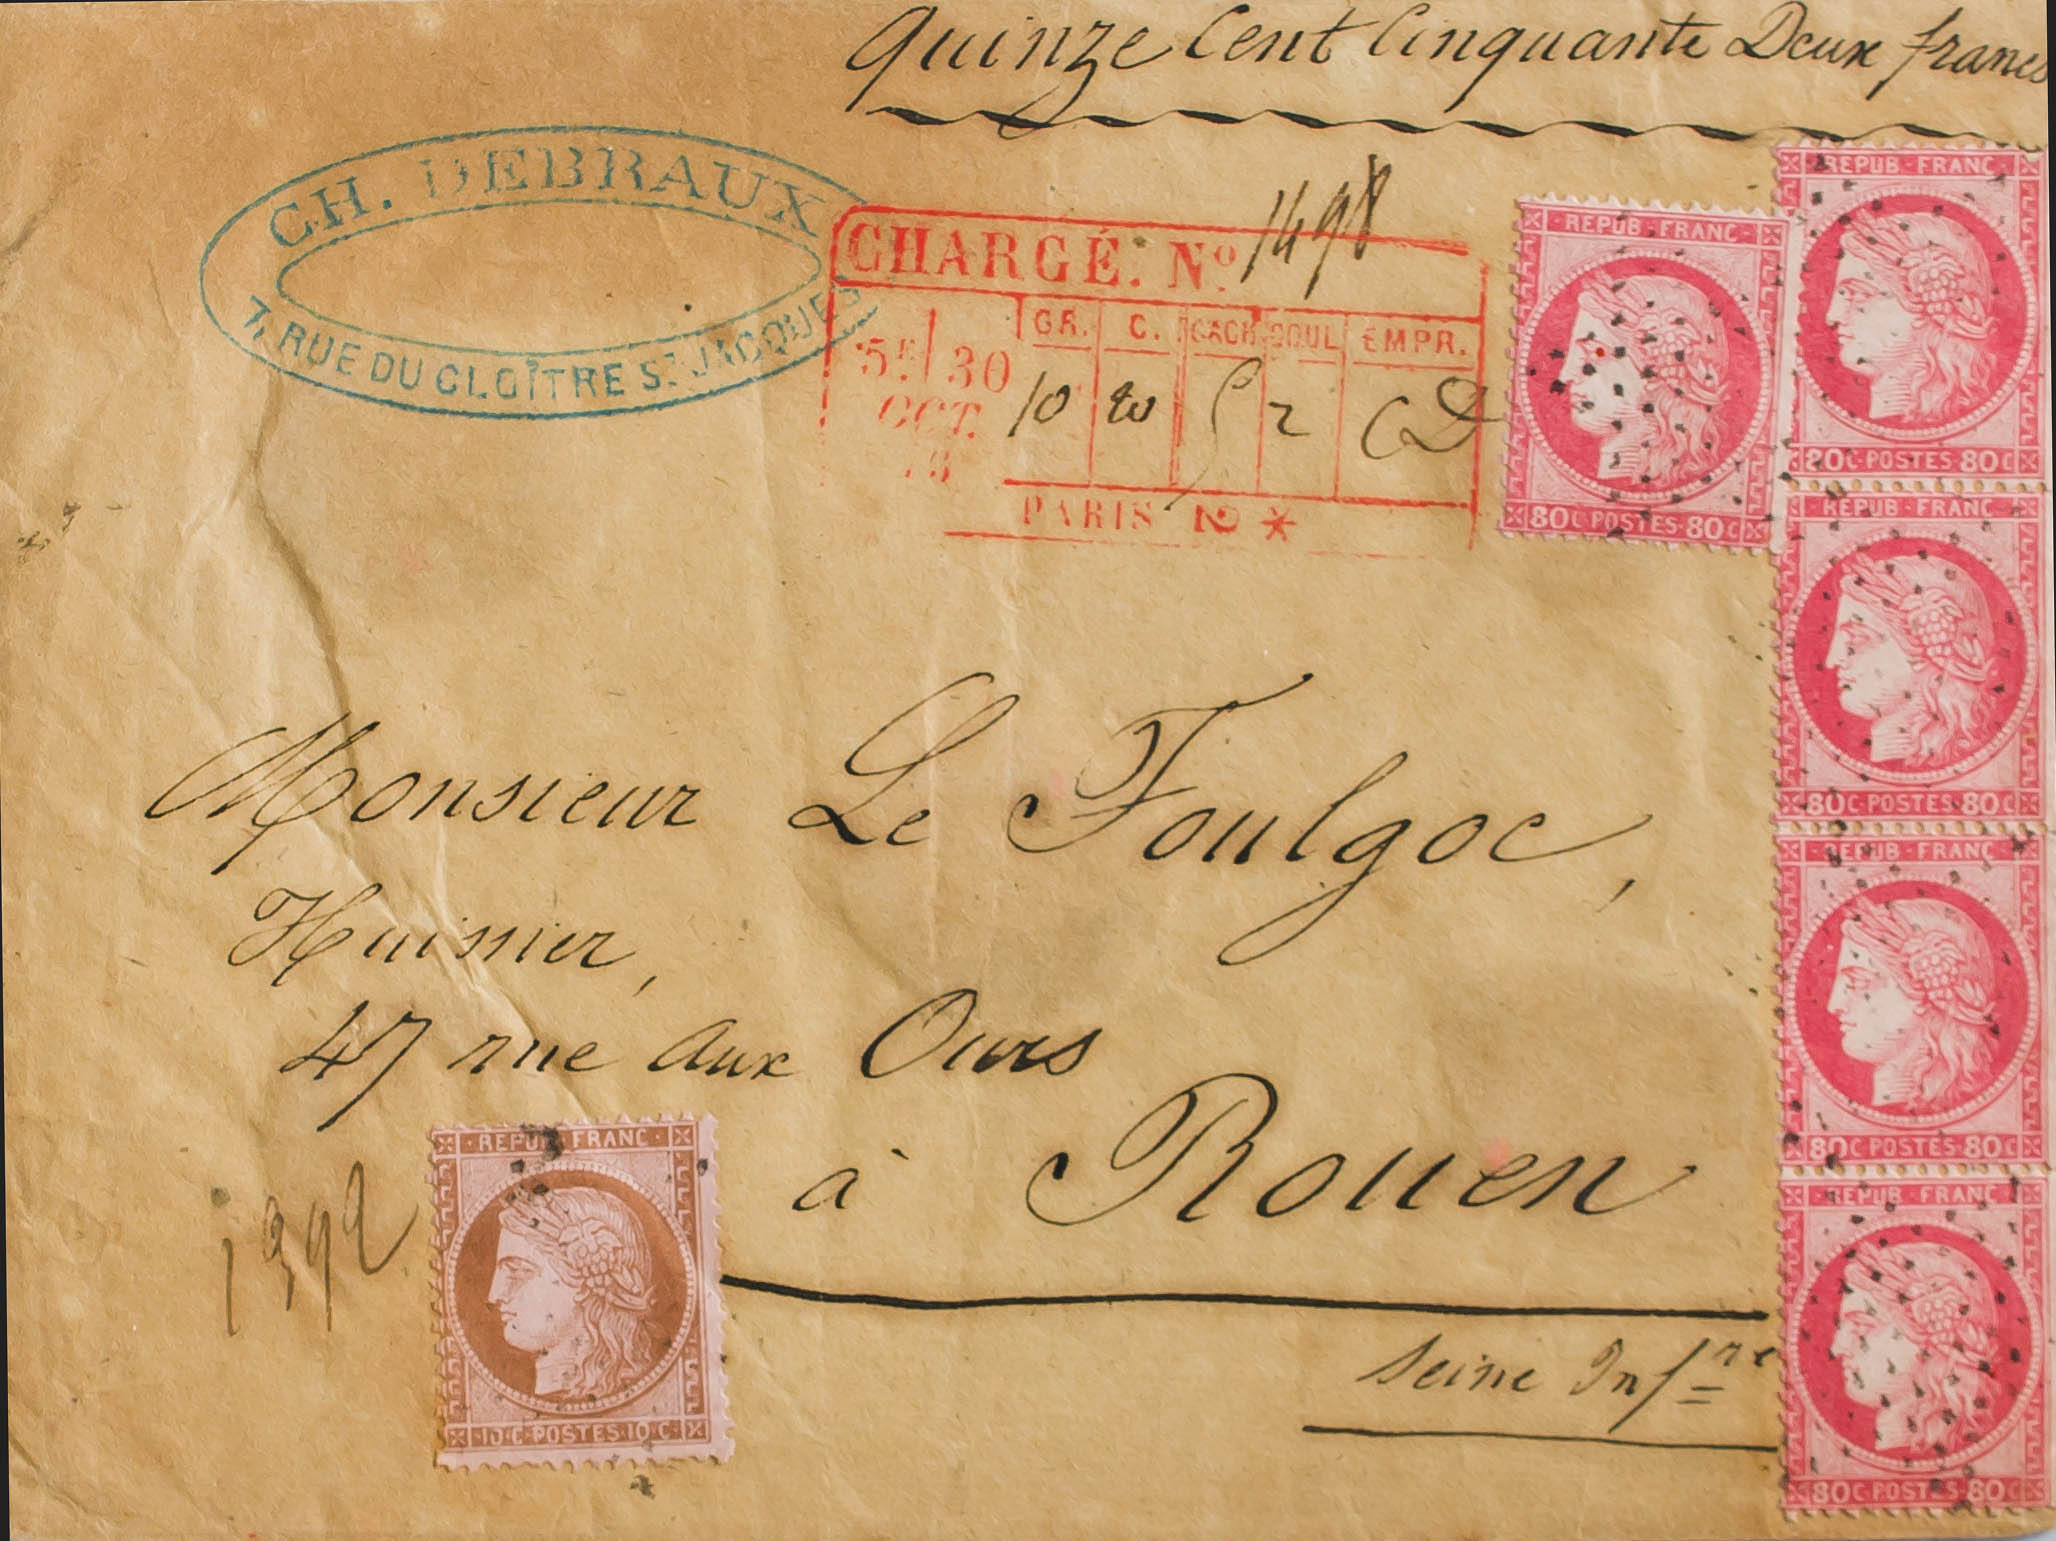 Quinze Cent Cinquante Deux francs
CH. DEBRAUX
7, RUE DU CLOÎTRE St. JACQUES
CHARGÉ. No. 1498
GR. C. CACH. BOUL. EMPR.
5E 30
OCT.
10 20 5 2
PARIS 12 *
REPUB·FRANC
80C·POSTES·80C
REPUB·FRANC
80C·POSTES·80C
REPUB·FRANC
80C·POSTES·80C
REPUB·FRANC
80C·POSTES·80C
REPUB·FRANC
80C·POSTES·80C
Monsieur Le Foulgoc,
Huissier,
47 rue aux Ours
à Rouen
Seine Infre
REPUB·FRANC·
10·C·POSTES·10·C·